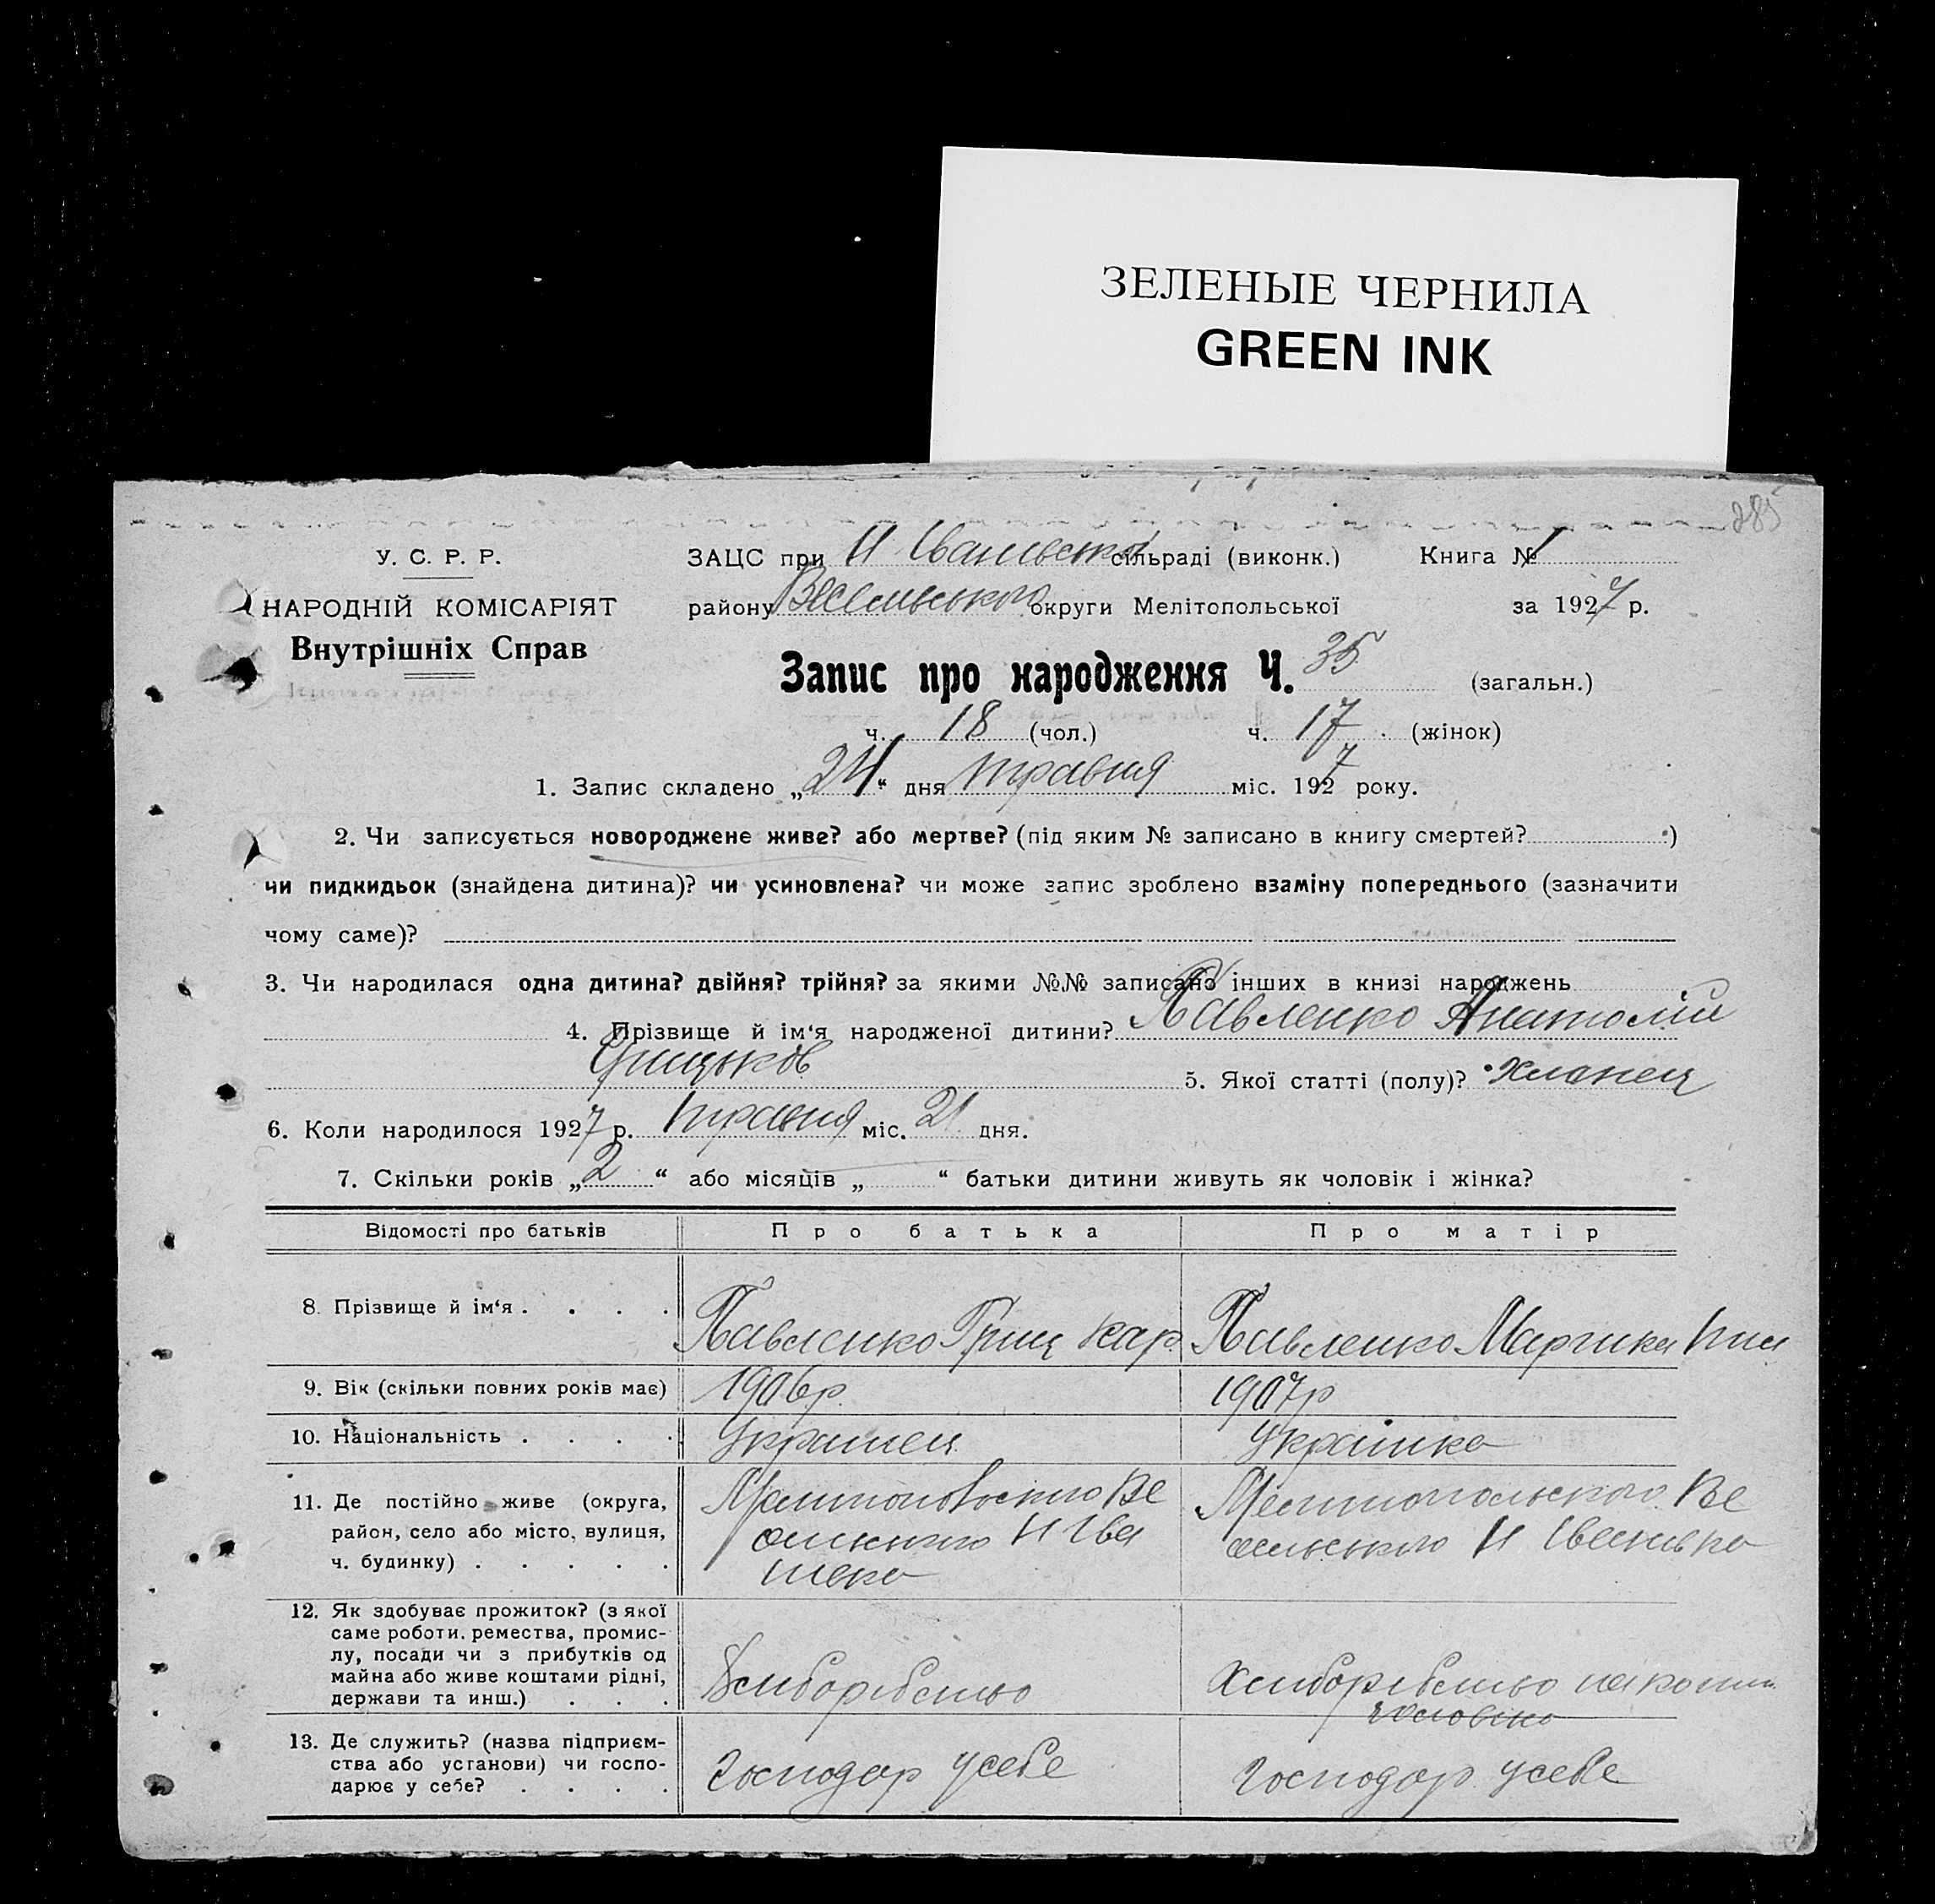 ЗЕЛЕНЫЕ ЧЕРНИЛА
GREEN INK
285
У. С. Р. Р.
НАРОДНІЙ КОМІСАРІЯТ
Внутрішніх Справ
ЗАЦС при Н Іванівській сільраді (виконк.) Книга № 1
району Веселівського округи Мелітопольської за 1927 р.
Запис про народження Ч. 35 (загальн.)
ч. 18 (чол.) ч. 17 (жінок)
1. Запис складено „24“ дня травня міс. 1927 року.
2. Чи записується новороджене живе? або мертве? (під яким № записано в книгу смертей? )
чи пидкидьок (знайдена дитина)? чи усиновлена? чи може запис зроблено взаміну попереднього (зазначити
чому саме)?
3. Чи народилася одна дитина? двійня? трійня? за якими №№ записано інших в книзі народжень
4. Прізвище й ім‘я народженої дитини? Павленко Анатолій
Грицьков 5. Якої статті (полу)? хлопец
6. Коли народилося 1927 р. травня міс. 21 дня.
7. Скільки років „2“ або місяців „ “ батьки дитини живуть як чоловік і жінка?
Відомості про батьків Про батька Про матір
8. Прізвище й ім‘я . . . . Павленко Гриц Кар Павленко Маринка
9. Вік (скільки повних років має) 1906р. 1907р
10. Національність . . . . Украинец Украінка
11. Де постійно живе (округа,
район, село або місто, вулиця,
ч. будинку) . . . . .
Мелитопольского Ве
сельского Н Ива
нивка
Мелитопольского Ве
сельського Н Іванивка
12. Як здобуває прожиток? (з якої
саме роботи, ремества, промис-
лу, посади чи з прибутків од
майна або живе коштами рідні,
держави та инш.) . . .
Хлиборобство
Хлиборобство на кошти
чоловіка
13. Де служить? (назва підприєм-
ства або установи) чи госпо-
дарює у себе? . . . .
Господар усебе
Господар усебе